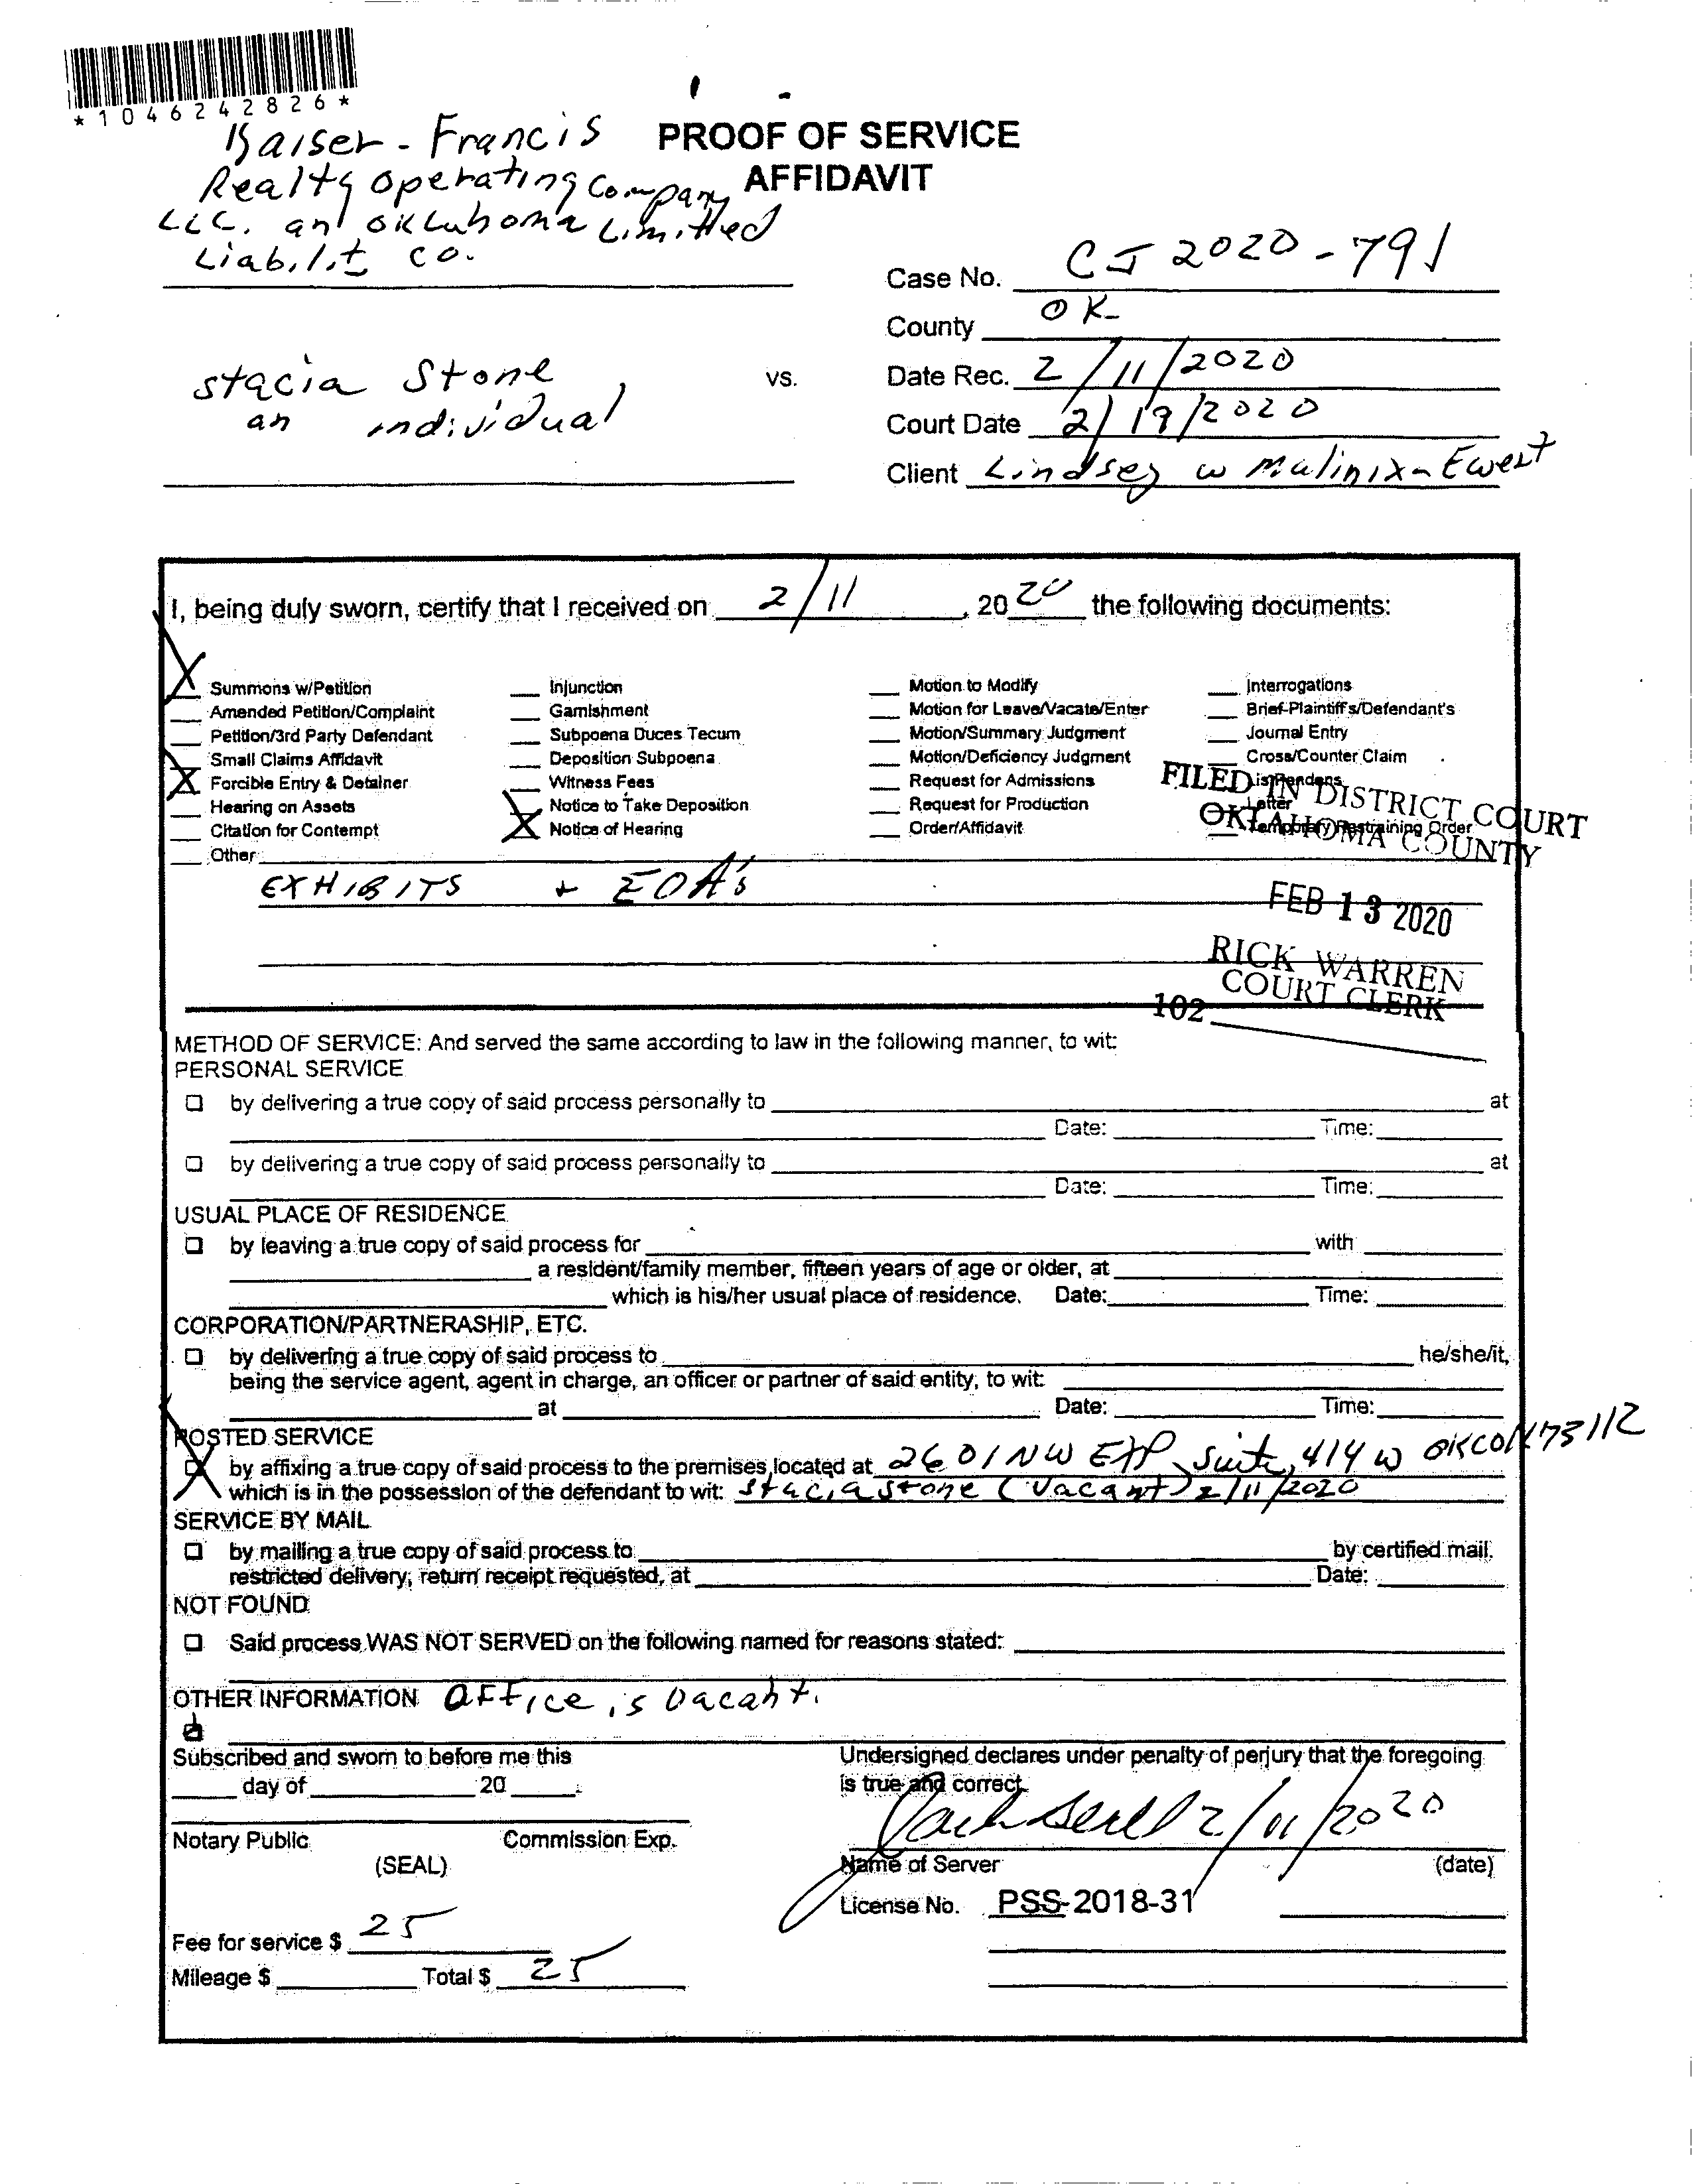 *1046242826*
Kaiser - Francis
Realty Operating Company
LLC. an Okluhoma Limitted
Liabilit Co.
PROOF OF SERVICE
AFFIDAVIT
Case No. CJ 2020-791
County OK
stacia Stone,
an individual
vs.
Date Rec. 2/11/2020
Court Date 2/19/2020
Client Lindsey w Mulinix-Ewert
I, being duly sworn, certify that I received on 2/11, 20 20 the following documents:
X Summons w/Petition
Amended Petition/Complaint
Petition/3rd Party Defendant
Small Claims Affidavit
X Forcible Entry & Detainer
Hearing on Assets
Citation for Contempt
Other
Injunction
Garnishment
Subpoena Duces Tecum
Deposition Subpoena
Witness Fees
Notice to Take Deposition
X Notice of Hearing
Motion to Modify
Motion for Leave/Vacate/Enter
Motion/Summary Judgment
Motion/Deficiency Judgment
Request for Admissions
Request for Production
Order/Affidavit
Interrogations
Brief-Plaintiff's/Defendant's
Journal Entry
Cross/Counter Claim
Lis Pendens
Letter
Temporary Restraining Order
EXHIBITS + EOA's
FILED IN DISTRICT COURT
OKLAHOMA COUNTY
FEB 13 2020
RICK WARREN
COURT CLERK
102
METHOD OF SERVICE: And served the same according to law in the following manner, to wit:
PERSONAL SERVICE
by delivering a true copy of said process personally to at
Date: Time:
by delivering a true copy of said process personally to at
Date: Time:
USUAL PLACE OF RESIDENCE
by leaving a true copy of said process for with
a resident/family member, fifteen years of age or older, at
which is his/her usual place of residence. Date: Time:
CORPORATION/PARTNERASHIP, ETC.
by delivering a true copy of said process to he/she/it,
being the service agent, agent in charge, an officer or partner of said entity, to wit:
at Date: Time:
POSTED SERVICE
X by affixing a true copy of said process to the premises located at 2601 NW EXP, Suite, 414 W OKCOK73112
which is in the possession of the defendant to wit: Stacia Stone (Vacant) 2/11/2020
SERVICE BY MAIL
by mailing a true copy of said process to by certified mail.
restricted delivery; return receipt requested, at Date:
NOT FOUND
Said process WAS NOT SERVED on the following named for reasons stated:
OTHER INFORMATION Office is Vacant.
Subscribed and sworn to before me this
day of 20 .
Notary Public Commission Exp.
(SEAL)
Undersigned declares under penalty of perjury that the foregoing
is true and correct.
2/11/2020
Name of Server (date)
License No. PSS-2018-31
Fee for service $ 25
Mileage $ Total $ 25